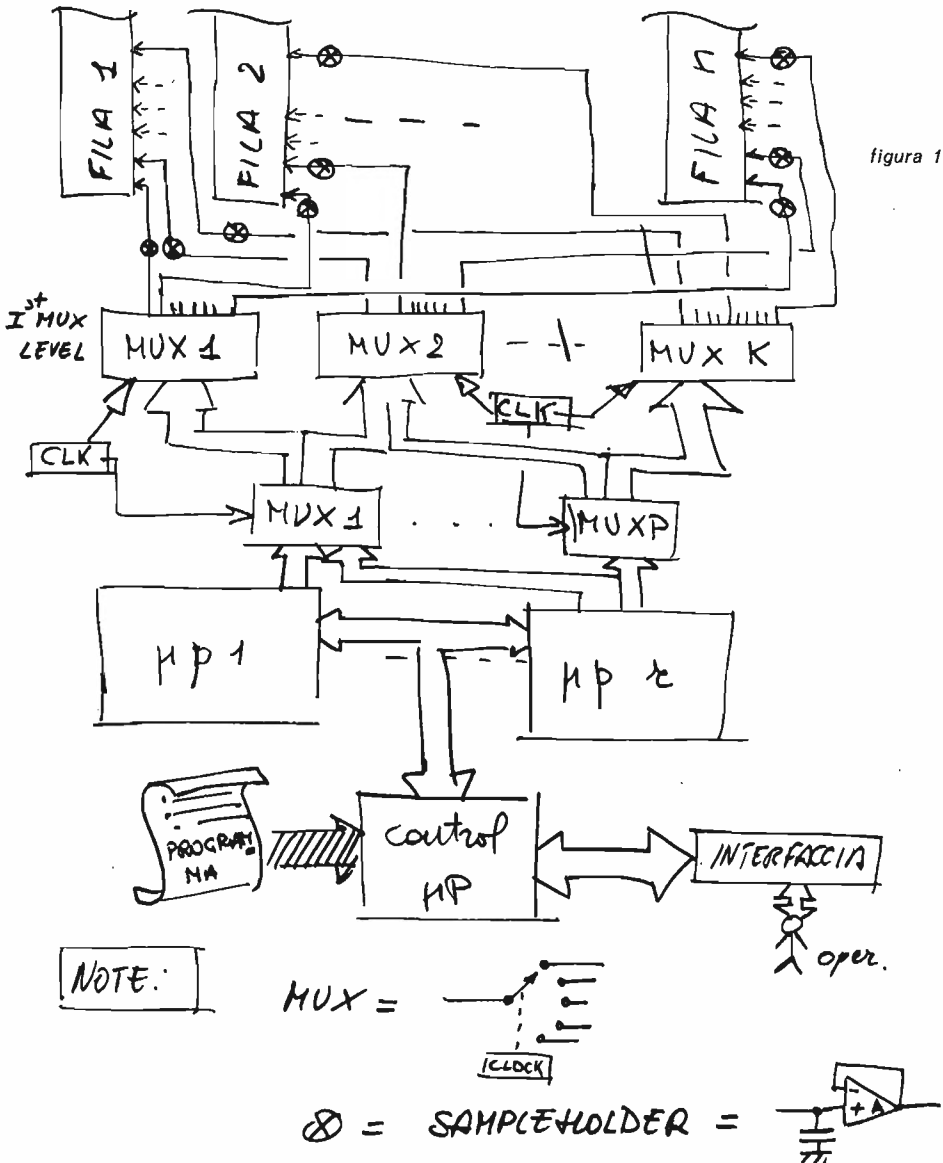 FILA 1
FILA 2
FILA n
figura 1
I st MUX
LEVEL
MUX 1
MUX 2
MUX K
CLK
CLK
MUX 1
MUX P
μp 1
μp r
PROGRAM
MA
control
μP
INTERFACCIA
oper.
NOTE:
MUX =
CLOCK
⊗ = SAMPLE HOLDER =
- + A